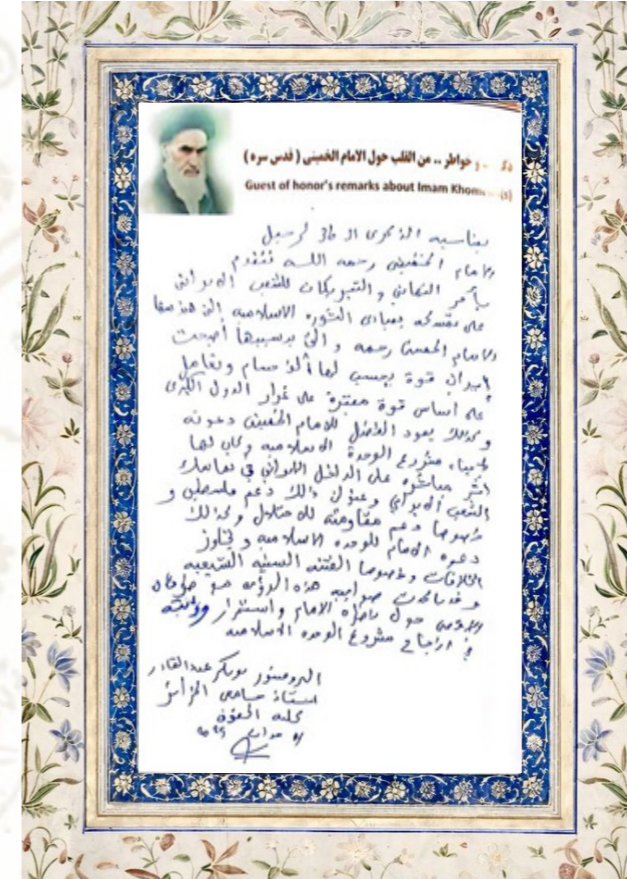 و خواطر .. من القلب حول الامام الخميني ( قدس سره )
Guest of honor's remarks about Imam Khom (s)
بمناسبة الذكرى ال 36 لرحيل
الامام الخميني رحمه الله نتقدم
بأحر التهاني و التبريكات للشعب الايراني
على تمسكه بمبادئ الثورة الاسلامية التي
الامام الخميني رحمه و التي بسببها أصبحت
ايران قوة يحسب لها ألف حساب وتعامل
على أساس قوة معتبرة على غرار الدول الكبرى
و كذلك يعود الفضل للامام الخميني دعوته
مشروع الوحدة الاسلامية و كان لها
أثر على الداخل الايراني في تماسك
الشعب الايراني و ذلك دعم فلسطين و
خصوصا دعم مقاومته للاحتلال و كذلك
دعوة الامام للوحدة الاسلامية و تجاوز
الخلافات و خصوصا الفتنة السنية الشيعية
و قد صوابية هذه الرؤى طوفان
حول الامام و استمرار
في مشروع الوحدة الاسلامية
البروفيسور بوبكر عبدالقادر
استاذ الجزائر
كلية الحقوق